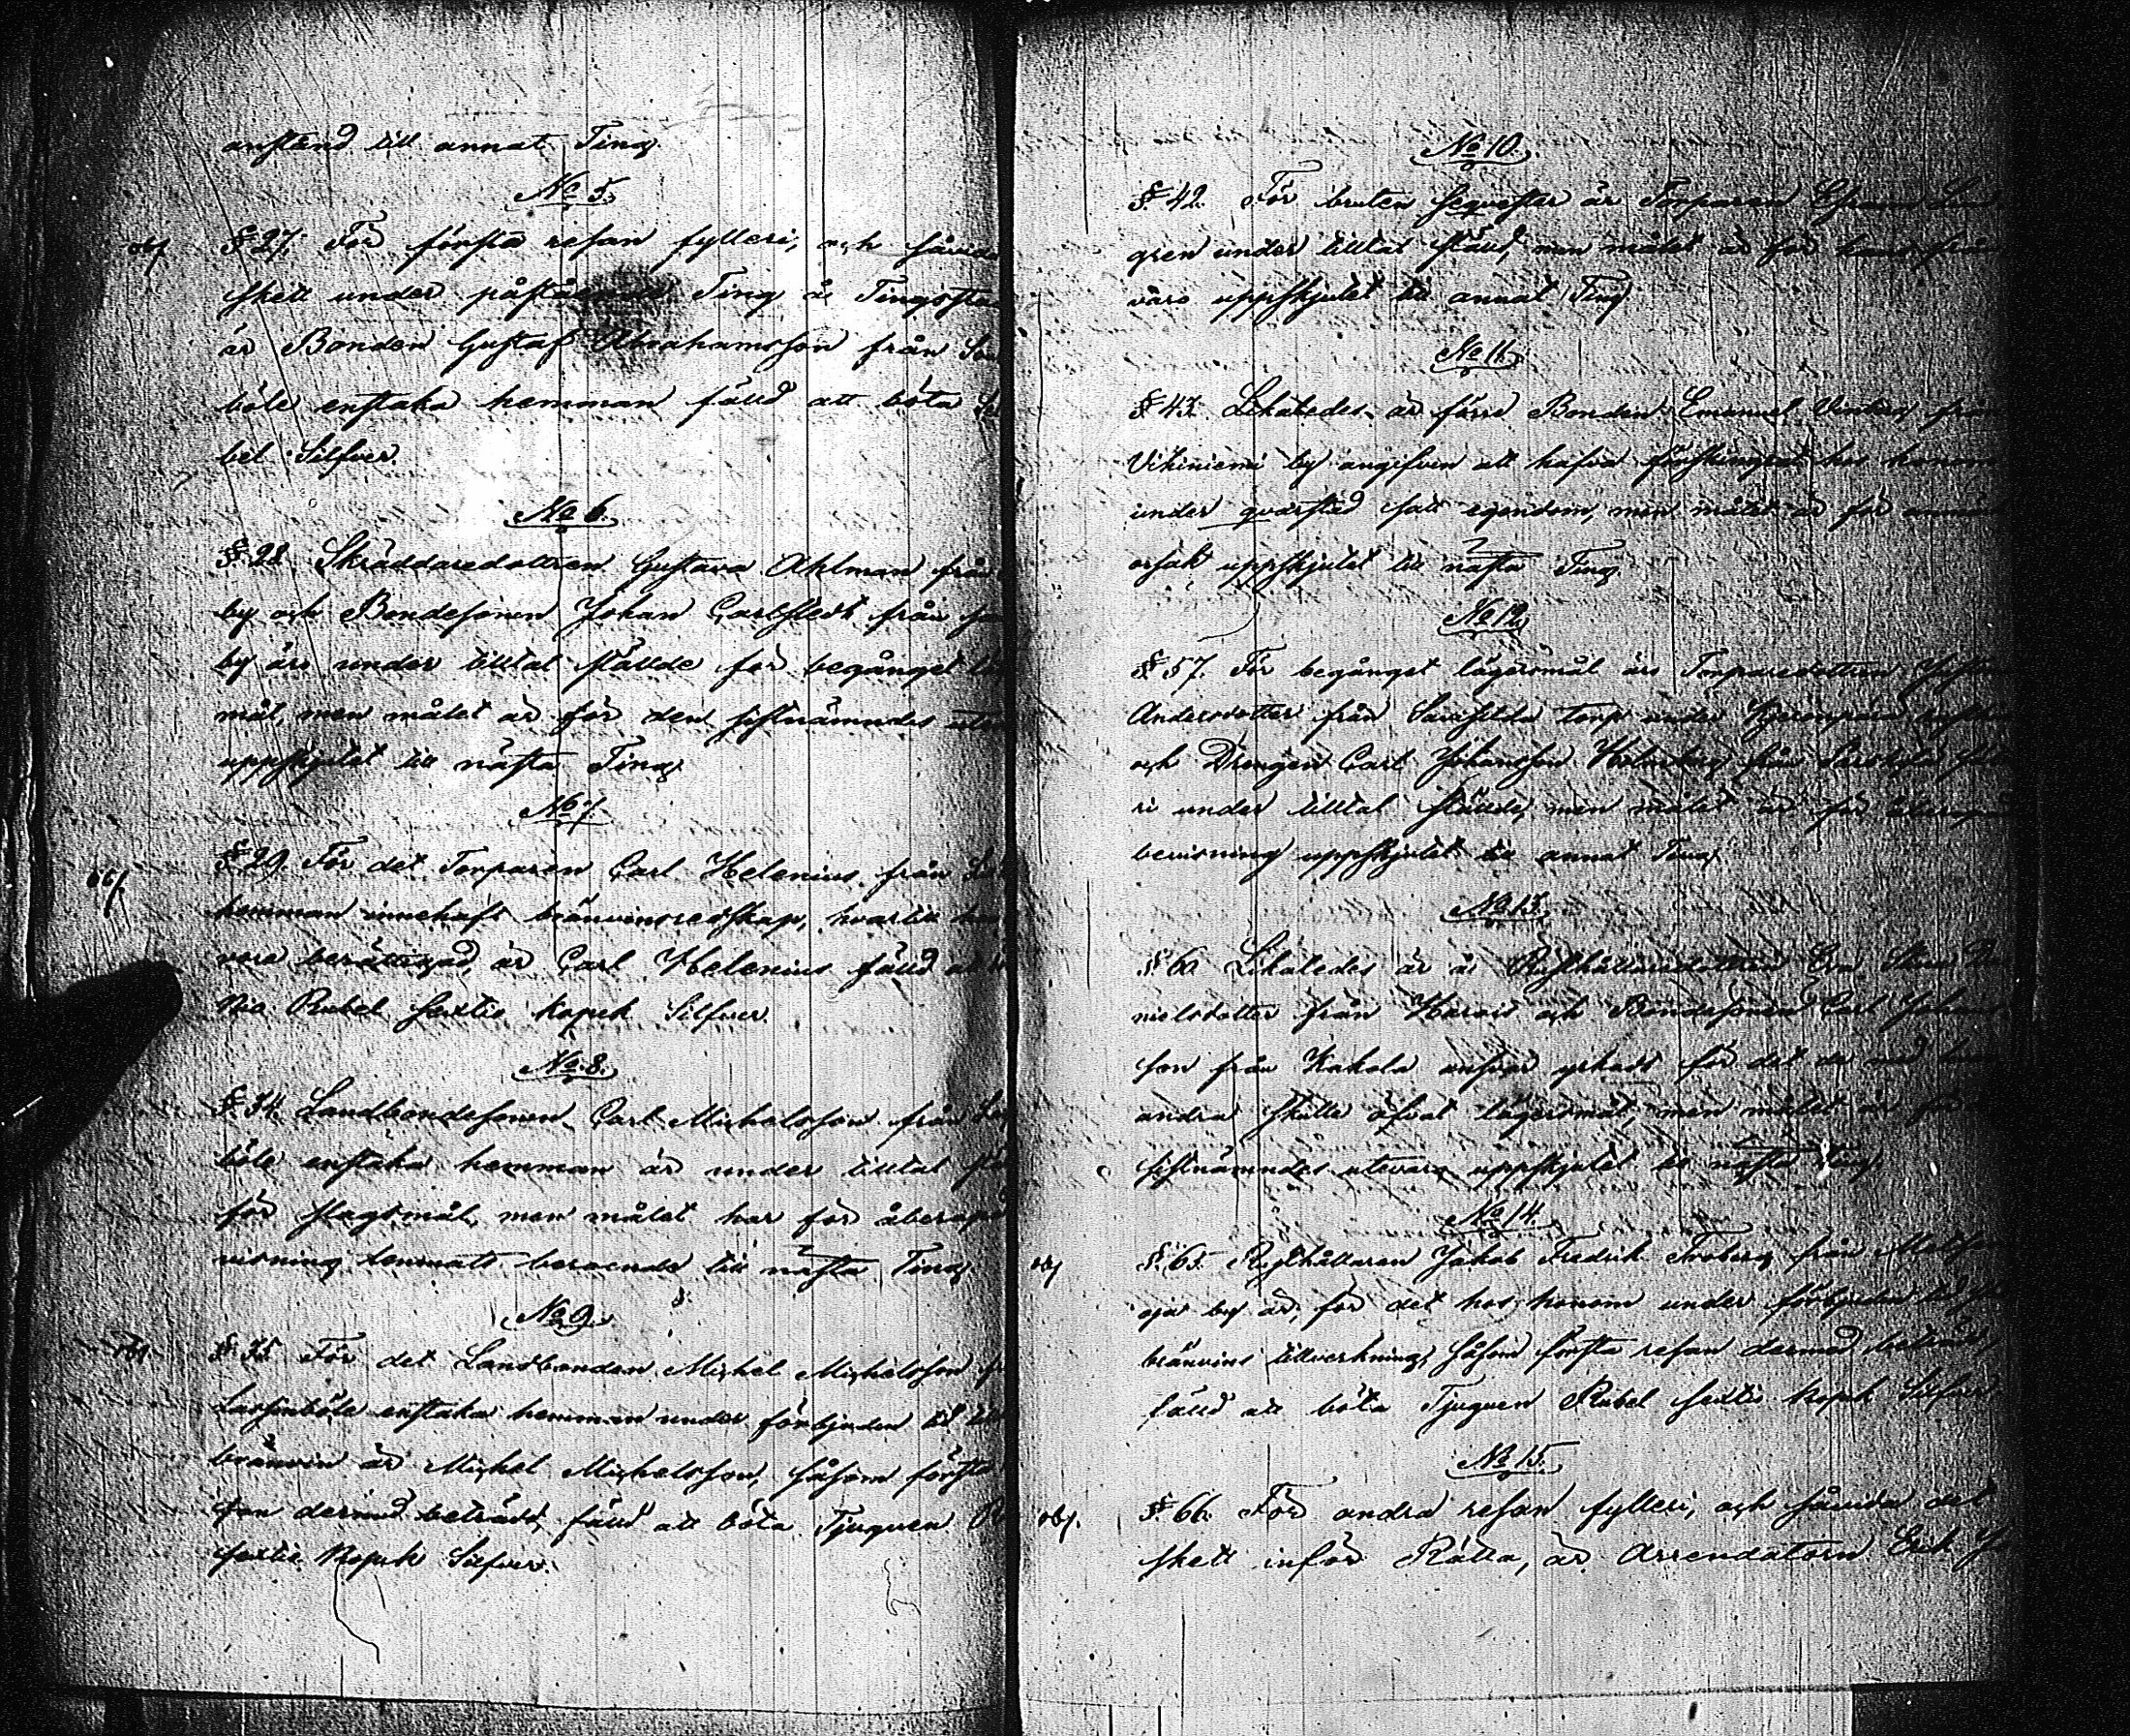 anstånd till annat Ting.
No 5.
obs. § 27. För första resan fylleri, och såvida
skett under påstående Ting å Tingsstad
är Bonden Gustaf Abrahamsson från
böle enstaka hemman fälld att böta
bel Silfver.
No 6.
§ 28. Skräddaredottren Gustava Ahlman från
by och Bondesonen Johan Carlstedt från
by äro under tilltal ställde för begånget
mål, men målet är för den sistnämndes
uppskjutet till nästa Ting.
No 7.
obs. § 29. För det Torparen Carl Helenius från
hemman innehaft bränvinsredskap, hvartill
vara berättigad, är Carl Helenius fälld att
Rubel sextio kopek Silfver.
No 8.
§ 34. Landbondesonen Carl Michelsson från
böle enstaka hemman är under tilltal
för slagsmål, men målet har för åberopad
visning lemnats beroende till nästa Ting.
No 9.
obs. § 35. För det Landbonden Michel Michelsson
Lassinböle enstaka hemman under förbjuden tid
bränvin är Michel Michelsson, såsom första
san dermed beträdd, fälld att böta Tjuguen
sextio Kopek Silfver.
No 10.
§ 42. För bruten sequester är Torparen
gren under tilltal ställd, men målet är för hans från
varo uppskjutet till annat Ting.
No 11.
§ 43. Likaledes är förre Bonden Emanuel från
by angifven att hafva förskingrat hos honom
under qvarstad satt egendom, men målet är för
orsak uppskjutet till nästa Ting.
No 12.
§ 57. För begånget lägersmål äro Torparedottren
Andersdotter från torp under
och Drengen Carl Johansson från
ri under tilltal ställde, men målet är för
bevisning uppskjutet till annat Ting.
No 13.
§ 60. Likaledes är å Rusthållaredottren Eva Stina
nielsdotter från och Bondesonen Carl Johans
son från Kakola ansvar yrkadt för det de med
andra skulle öfvat lägersmål, men målet är för
sistnämndes utevaro uppskjutet till nästa Ting.
No 14.
obs. § 65. Rusthållaren Jakob Fredrik Froberg från
oja by är, för det hos honom under förbjuden tid
bränvins tillverkning, såsom första resan dermed beträdd,
fälld att böta Tjuguen Rubel sextio kopek Silfver
No 15.
obs. § 66. För andra resan fylleri, och såvida det
skett inför Rätta, är Arrendatorn Erik